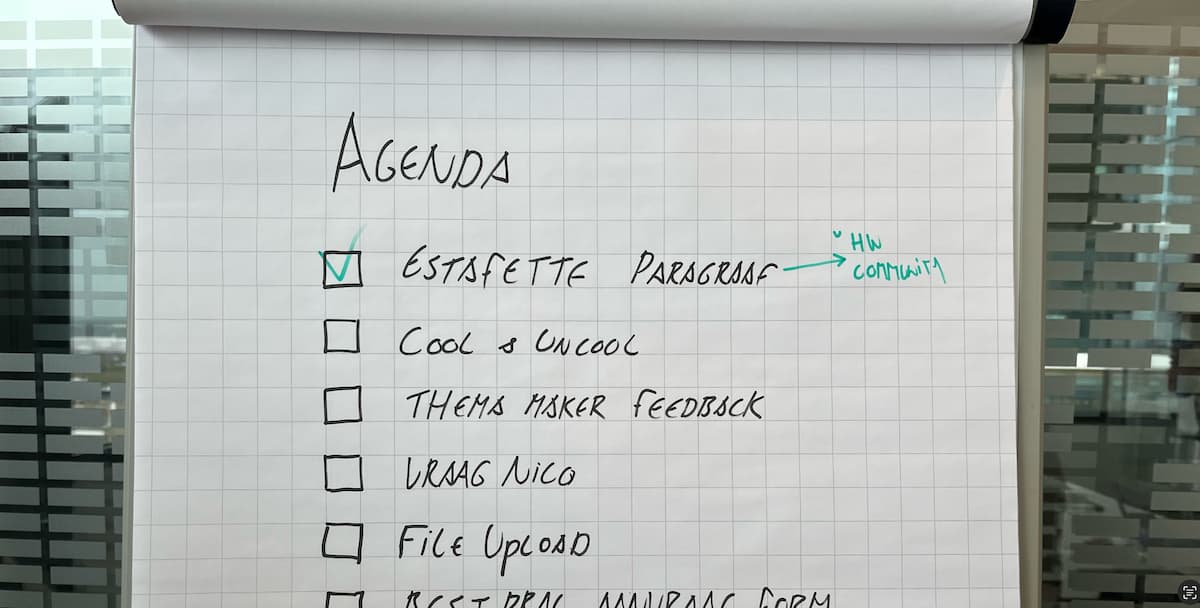 AGENDA
ESTAFETTE PARAGRAAF → " HW
COMMUNITY
COOL & UNCOOL
THEMA MAKER FEEDBACK
VRAAG NICO
FILE UPLOAD
FORM